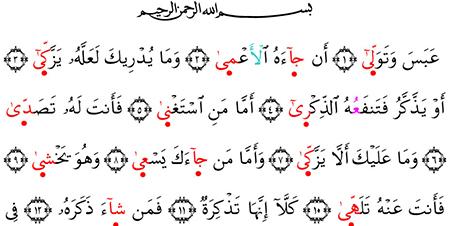 بسم الله الرحمن الرحيم
عَبَسَ وَتَوَلّىٰٓ ﴿١﴾ أَن جَآءَهُ الۡأَعۡمىٰ ﴿٢﴾ وَمَا يُدۡرِيكَ لَعَلَّهُۥ يَزَّكّىٰٓ ﴿٣﴾
أَوۡ يَذَّكَّرُ فَتَنفَعُهُ الذِّكۡرىٰٓ ﴿٤﴾ أَمَّا مَنِ اسۡتَغۡنىٰ ﴿٥﴾ فَأَنتَ لَهُۥ تَصَدّىٰ
﴿٦﴾ وَمَا عَلَيۡكَ أَلَّا يَزَّكّىٰ ﴿٧﴾ وَأَمَّا مَن جَآءَكَ يَسۡعىٰ ﴿٨﴾ وَهُوَ يَخۡشىٰ ﴿٩﴾
فَأَنتَ عَنۡهُ تَلَهّىٰ ﴿١٠﴾ كَلَّآ إِنَّهَا تَذۡكِرَةٌ ﴿١١﴾ فَمَن شَآءَ ذَكَرَهُۥ ﴿١٢﴾ فِى